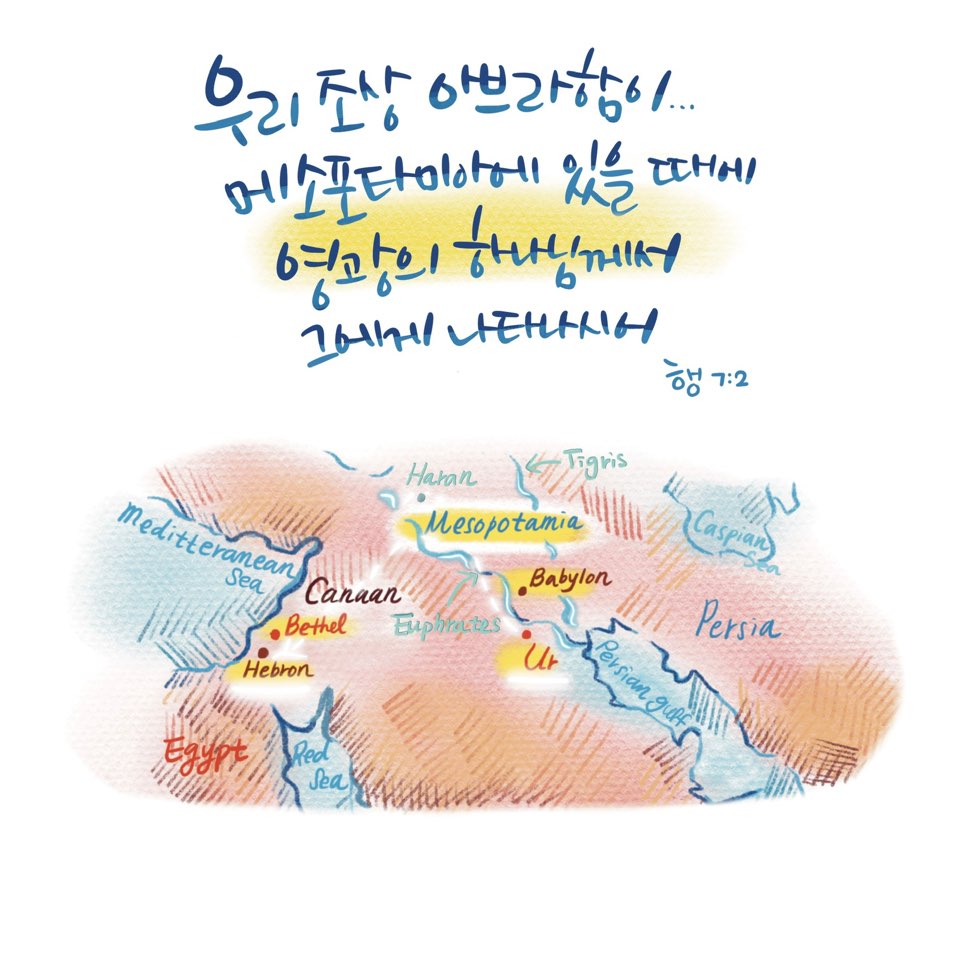 우리 조상 아브라함이...
메소포타미아에 있을 때에
영광의 하나님께서
그에게 나타나시어
행 7:2
Haran
Tigris
Mesopotamia
Meditteranean
Sea
Caspian
Sea
Canaan
Babylon
Bethel
Euphrates
Persia
Hebron
Ur
Persian gulf
Egypt
Red
Sea